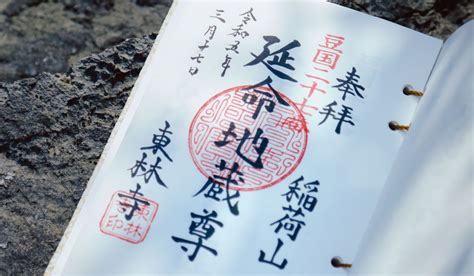 奉拝
豆国二十七
稲荷山
延命地蔵尊
東林寺
東林寺印
令和五年
三月十七日